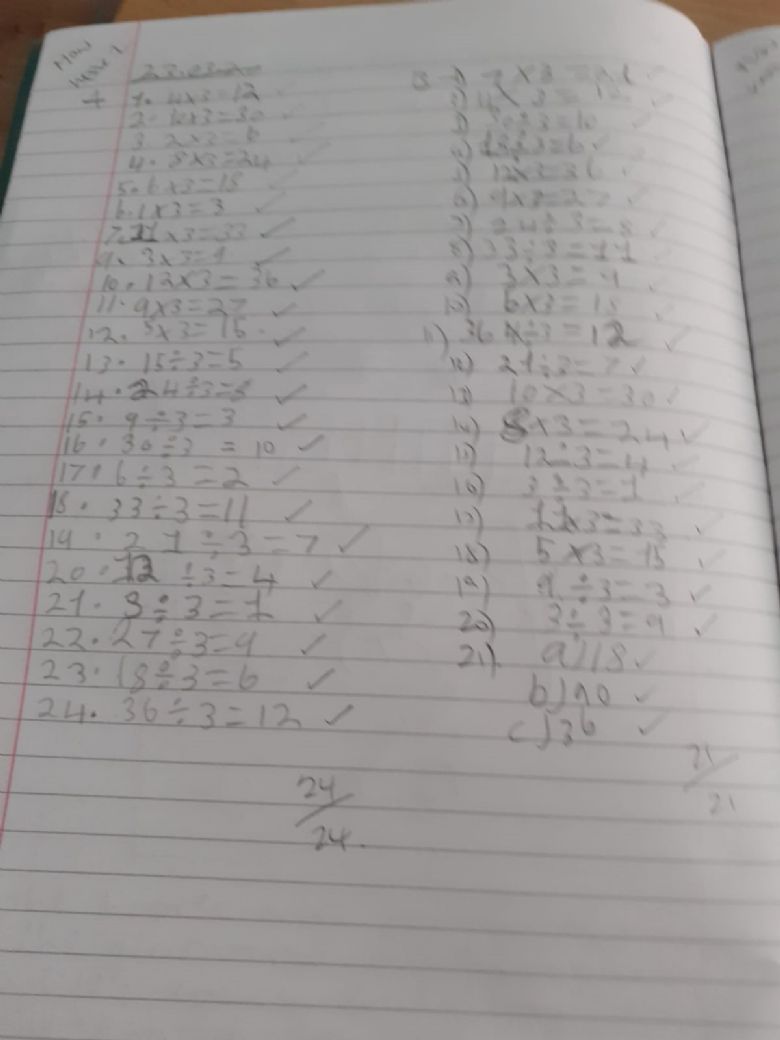 Mon
Week 7
1. 4x3=12
2. 10x3=30
3 2x3=6
4. 8x3=24
5. 6x3=18
6. 1x3=3
7. 11x3=33
9. 3x3=9
10. 12x3=36
11. 9x3=27
12. 5x3=15
13. 15÷3=5
14. 24÷3=8
15. 9÷3=3
16. 30÷3 = 10
17. 6÷3=2
18. 33÷3=11
19. 21÷3=7
20. 12÷3=4
21. 3÷3=1
22. 27÷3=9
23. 18÷3=6
24. 36÷3=12
24/24.
B 1) 7x3=21
2) 4x3=12
3) 30÷3=10
4) 18÷3=6
5) 12x3=36
6) 9x3=27
7) 24÷3=8
8) 33÷3=11
9) 3x3=9
10) 6x3=18
11) 36÷3=12
12) 21÷3=7
13) 10x3=30
14) 8x3=24
15) 12÷3=4
16) 3÷3=1
17) 11x3=33
18) 5x3=15
19) 9÷3=3
20) 3÷3=9
21). a)18
b)90
c)36
21/21